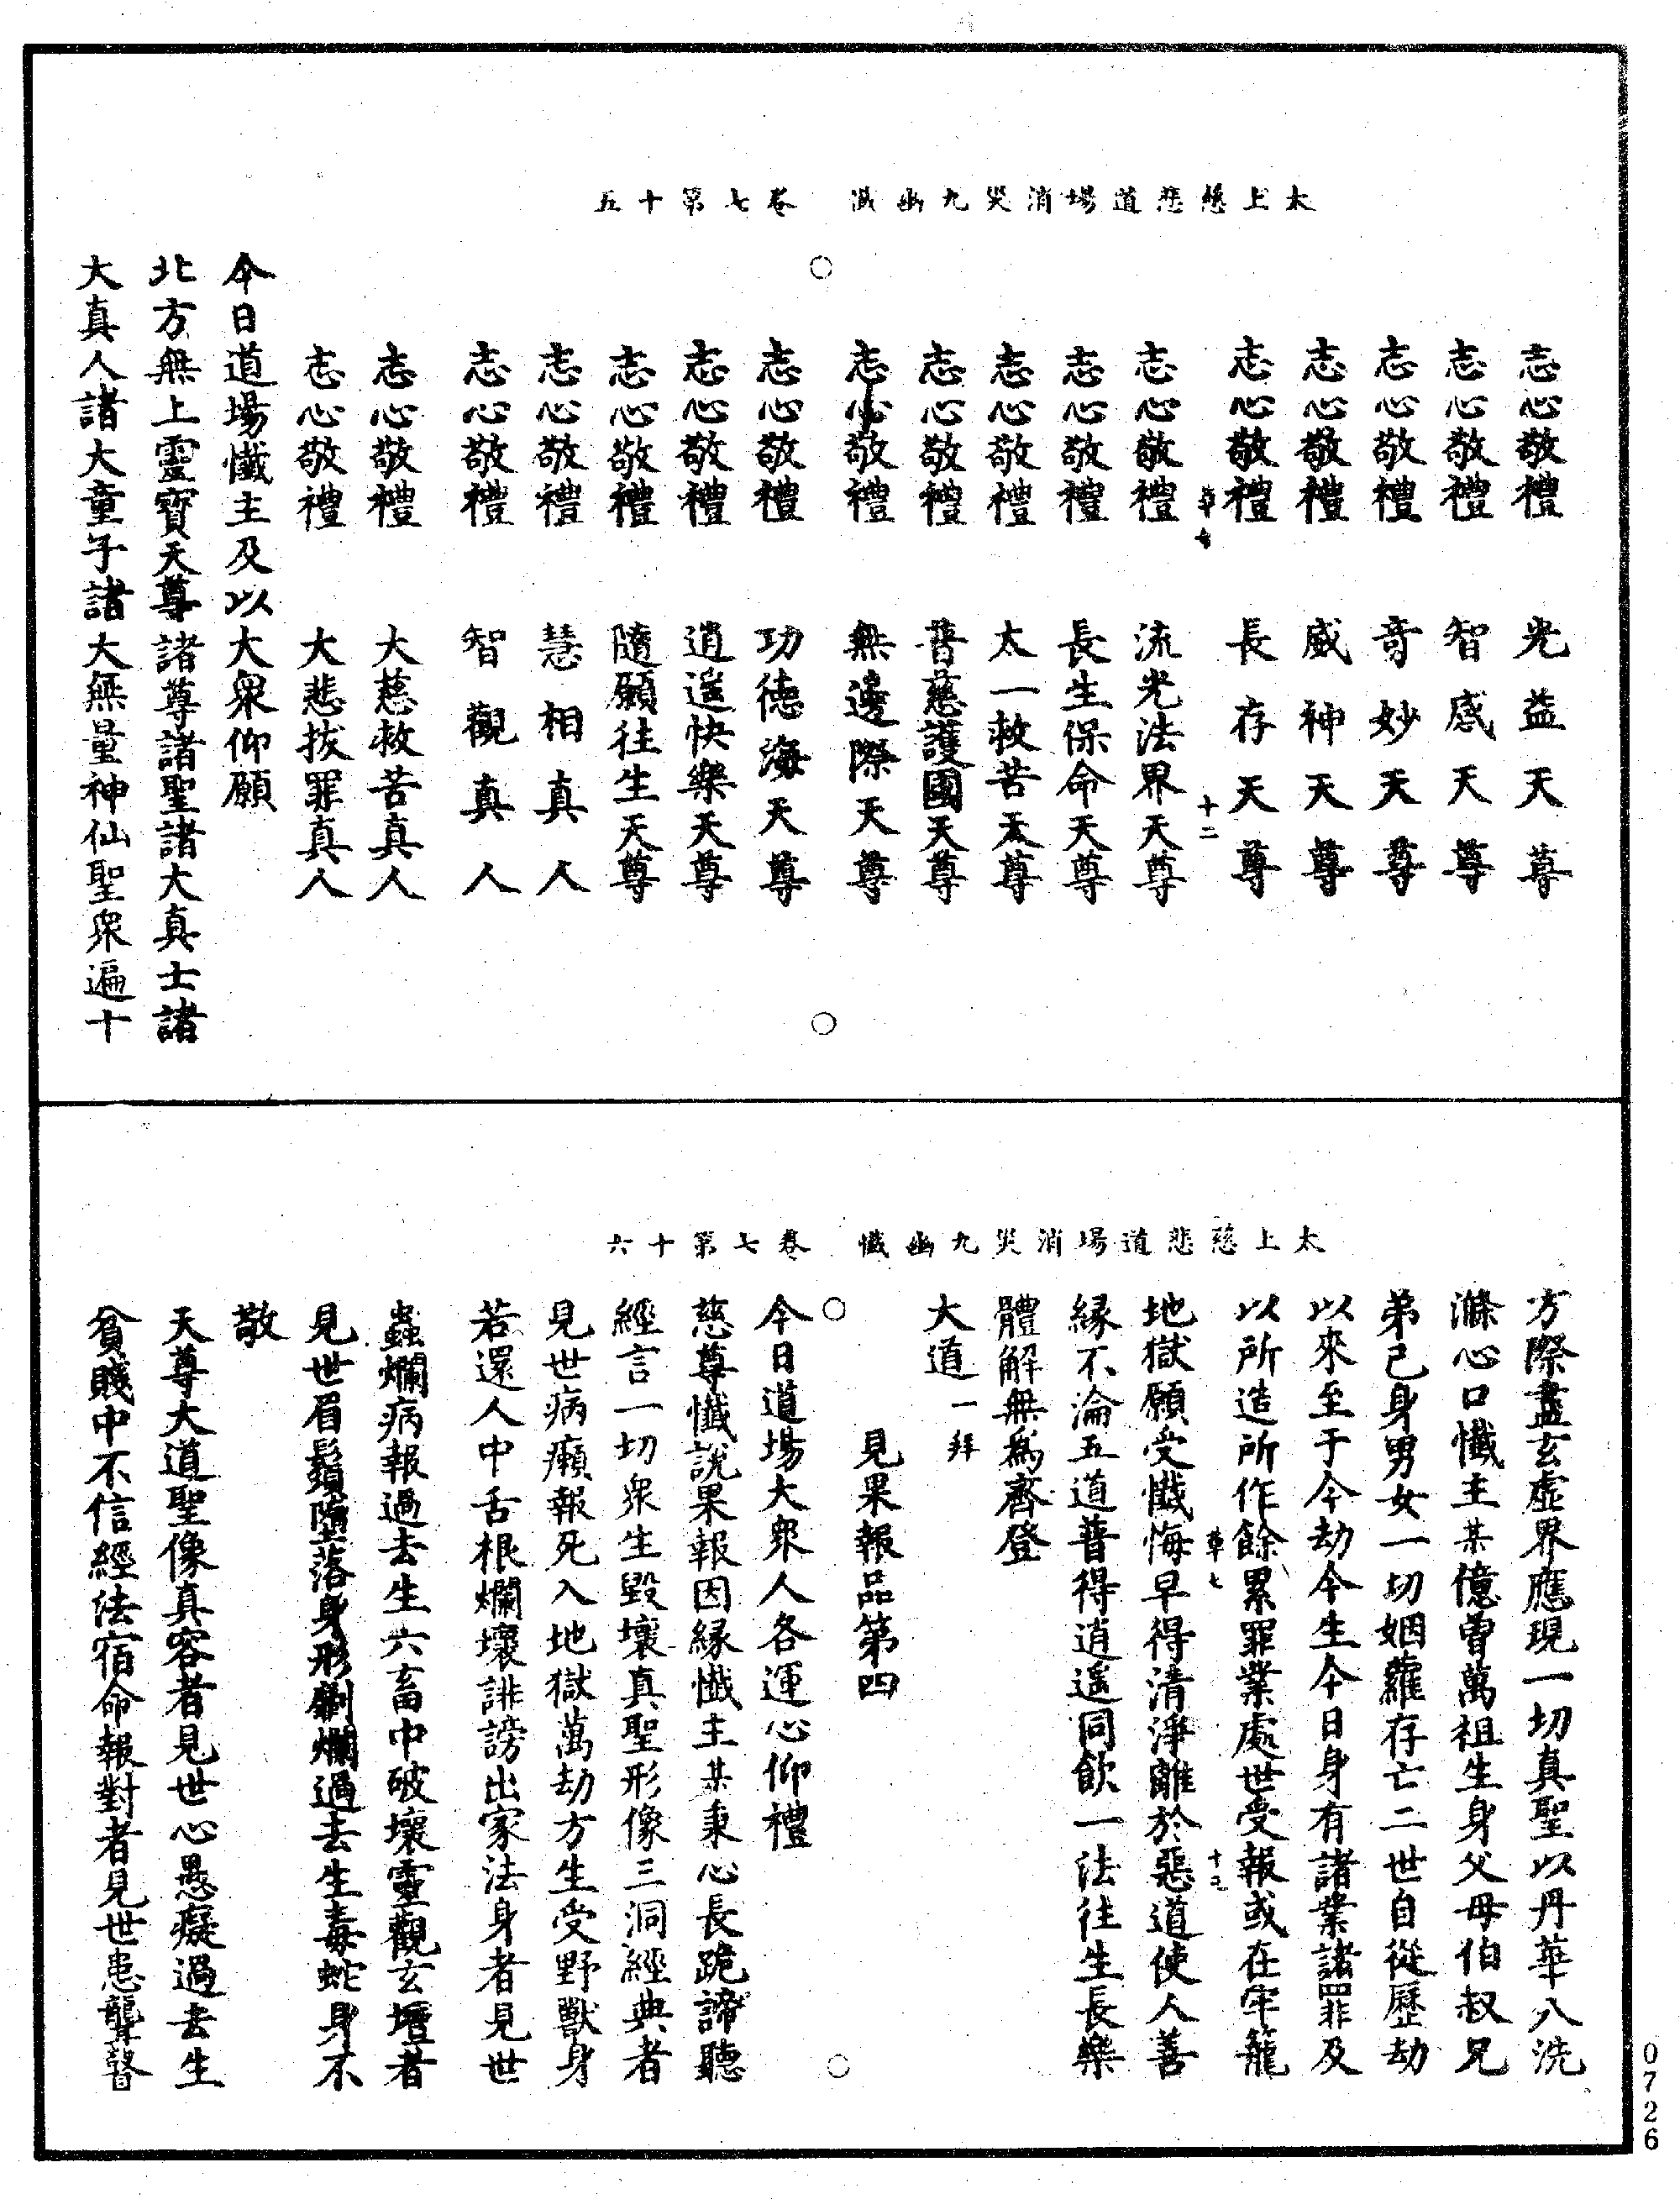 太上慈悲道場消災九幽懺　卷七第十五
志心敬禮　光益天尊
志心敬禮　智感天尊
志心敬禮　奇妙天尊
志心敬禮　威神天尊
志心敬禮　長存天尊
草七　十二
志心敬禮　流光法界天尊
志心敬禮　長生保命天尊
志心敬禮　太一救苦天尊
志心敬禮　普慈護國天尊
志心敬禮　無邊際天尊
志心敬禮　功德海天尊
志心敬禮　逍遥快樂天尊
志心敬禮　隨願往生天尊
志心敬禮　慧相真人
志心敬禮　智觀真人
志心敬禮　大慈救苦真人
志心敬禮　大悲拔罪真人
今日道場懺主及以大衆仰願
北方無上靈寶天尊諸尊諸聖諸大真士諸
大真人諸大童子諸大無量神仙聖衆遍十
太上慈悲道場消災九幽懺　卷七第十六
方際盡玄虛界應現一切真聖以丹華八洗
滌心口懺主某億曾萬祖生身父母伯叔兄
弟己身男女一切姻蘿存亡二世自從歷劫
以來至于今劫今生今日身有諸業諸罪及
以所造所作餘累罪業處世受報或在牢籠
草七
地獄願受懺悔早得清淨離於惡道使人善
縁不淪五道普得逍遥同飲一法往生長樂
體解無為齊登
大道一拜
見果報品第四
今日道場大衆人各運心仰禮
慈尊懺說果報因緣懺主某秉心長跪諦聽
經言一切衆生毀壞真聖形像三洞經典者
見世病癩報死入地獄萬劫方生受野獸身
若還人中舌根爛壞誹謗出家法身者見世
蟲爛病報過去生六畜中破壞靈觀玄壇者
見世眉鬚墮落身形爛過去生毒蛇身不
敬
天尊大道聖像真容者見世心愚癡過去生
貧賤中不信經法宿命報對者見世患聾瞽
0726